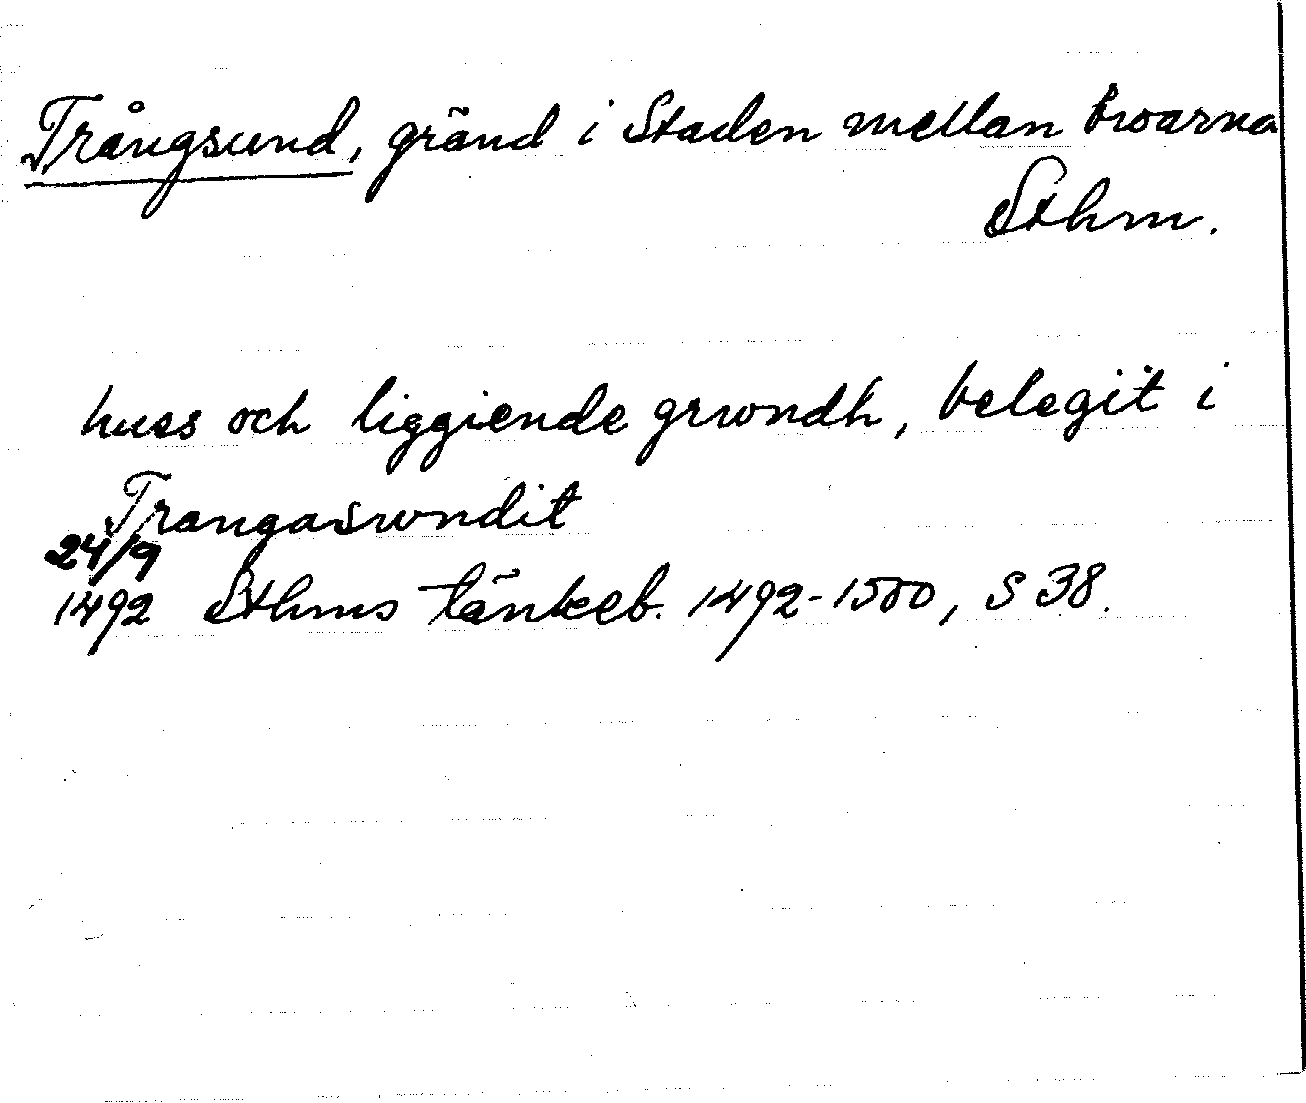 Trångsund, gränd i Staden mellan broarna
Sthm.
hues och liggiende grwndh, belegit i
Trangaswndit
24/9
1492 Sthms tänkeb. 1492-1500, S 38.